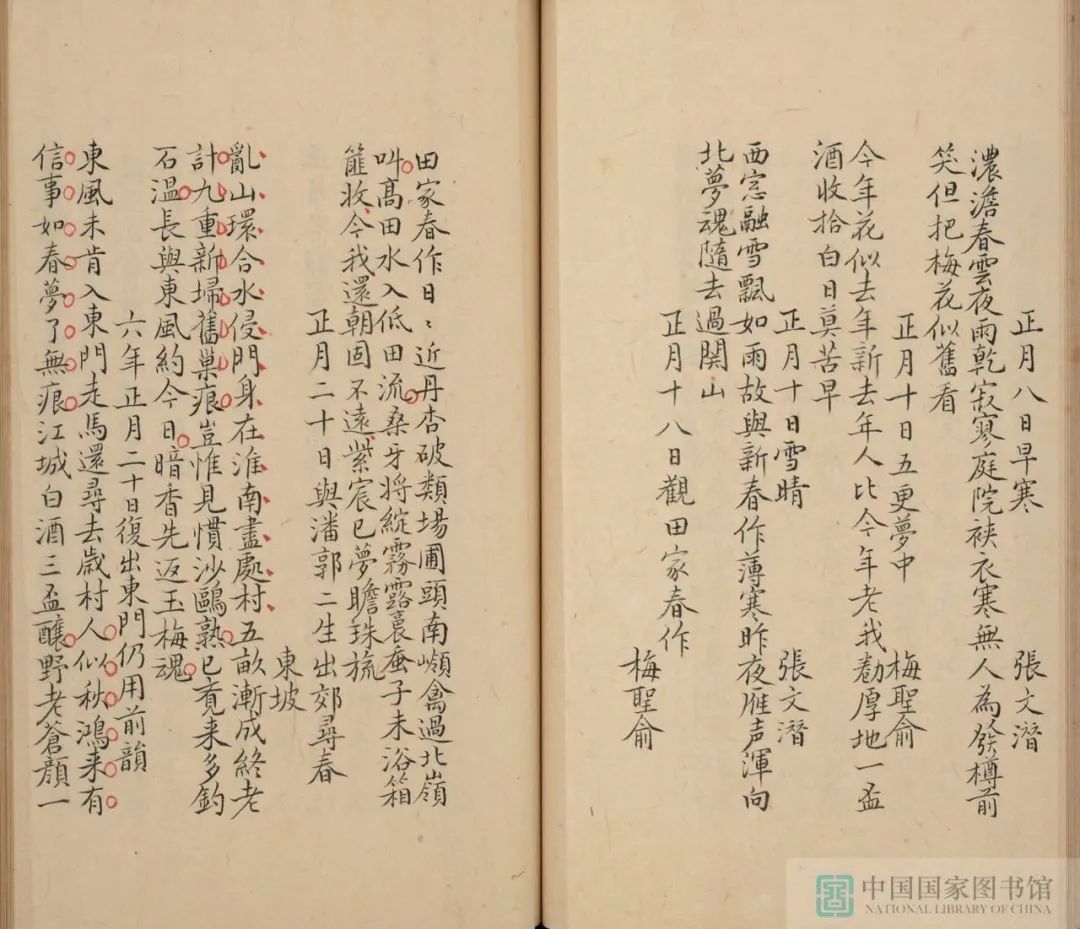 正月八日早寒　張文潛
濃澹春雲夜雨乾寂寥庭院裌衣寒無人為發樽前
笑但把梅花似舊看
正月十日五更夢中　梅聖俞
今年花似去年新去年人比今年老我勸厚地一盃
酒收拾白日莫苦早
正月十日雪晴　張文潛
西窓融雪飄如雨故與新春作薄寒昨夜雁声渾向
北夢魂隨去過関山
正月十八日觀田家春作
梅聖俞
田家春作日﹕近丹杏破類場圃頭南嶺禽過北嶺
叫高田水入低田流桑牙將綻霧露裛蚕子未浴箱
篚收今我還朝固不遠紫宸已夢瞻珠旒
正月二十日與潘郭二生出郊尋春
東坡
亂山環合水侵門身在淮南盡處村五畝漸成終老
計九重新埽舊巢痕豈惟見慣沙鷗熟已覓来多釣
石溫長與東風約今日暗香先返玉梅魂
六年正月二十日復出東門仍用前韻
東風未肯入東門走馬還尋去歲村人似秋鴻来有
信事如春夢了無痕江城白酒三盃釀野老蒼顏一
中国国家图书馆
NATIONAL LIBRARY OF CHINA